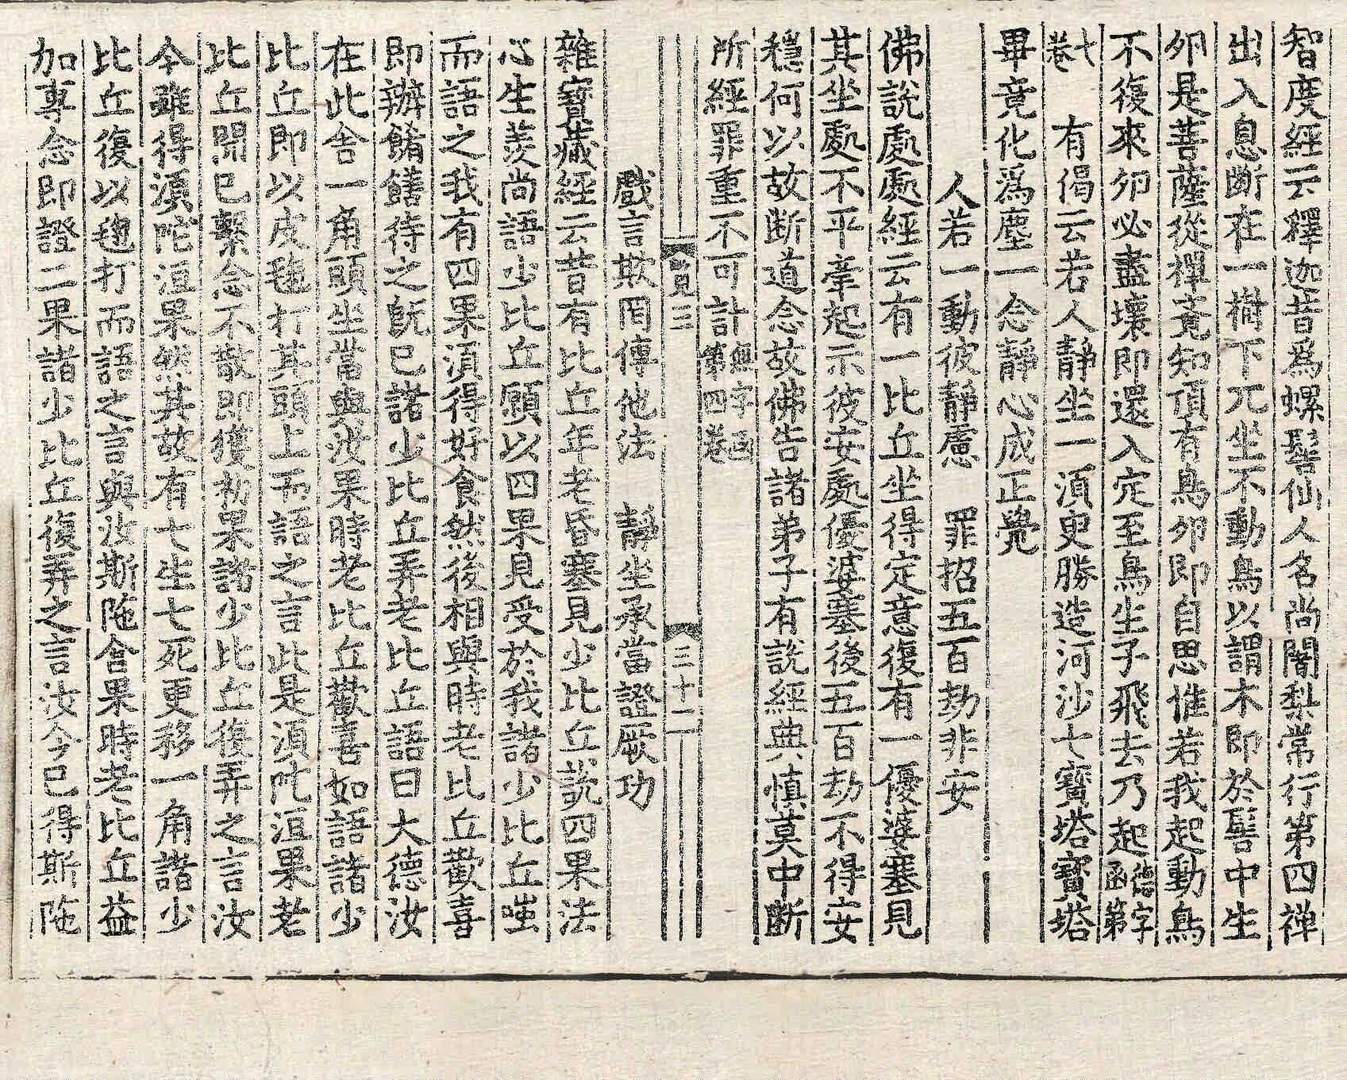 智度經云釋迦昔爲螺髻仙人名尚闍梨常行第四禪
出入息断在一樹下兀坐不動鳥以謂木即於髻中生
卵是菩薩從禪竟知頂有鳥卵即自思惟若我起動鳥
不復來卵必盡壞即還入定至鳥生子飛去乃起德字函第
七卷 有偈云若人靜坐一須臾勝造河沙七寶塔寶塔
畢竟化爲塵一念靜心成正覺
人若一動彼靜慮 罪招五百劫非安
佛說處處經云有一比丘坐得定意復有一優婆塞見
其坐處不平牽起示彼安處優婆塞後五百劫不得安
穩何以故断道念故佛告諸弟子有說經典慎莫中断
所經罪重不可計無字函第四卷
見三 三十二
戲言欺罔傳他法 靜坐承當證厥功
雜寶藏經云昔有比丘年老昏塞見少比丘說四果法
心生羨尚語少比丘願以四果見受於我諸少比丘嗤
而語之我有四果須得好食然後相與時老比丘歡喜
即辦餚饍待之旣已諸少比丘弄老比丘語曰大德汝
在此舍一角頭坐當與汝果時老比丘歡喜如語諸少
比丘即以皮毱打其頭上而語之言此是須陀洹果老
比丘聞已繫念不散即獲初果諸少比丘復弄之言汝
今雖得須陀洹果然其故有七生七死更移一角諸少
比丘復以毱打而語之言與汝斯陁含果時老比丘益
加專念即證二果諸少比丘復弄之言汝今已得斯陁